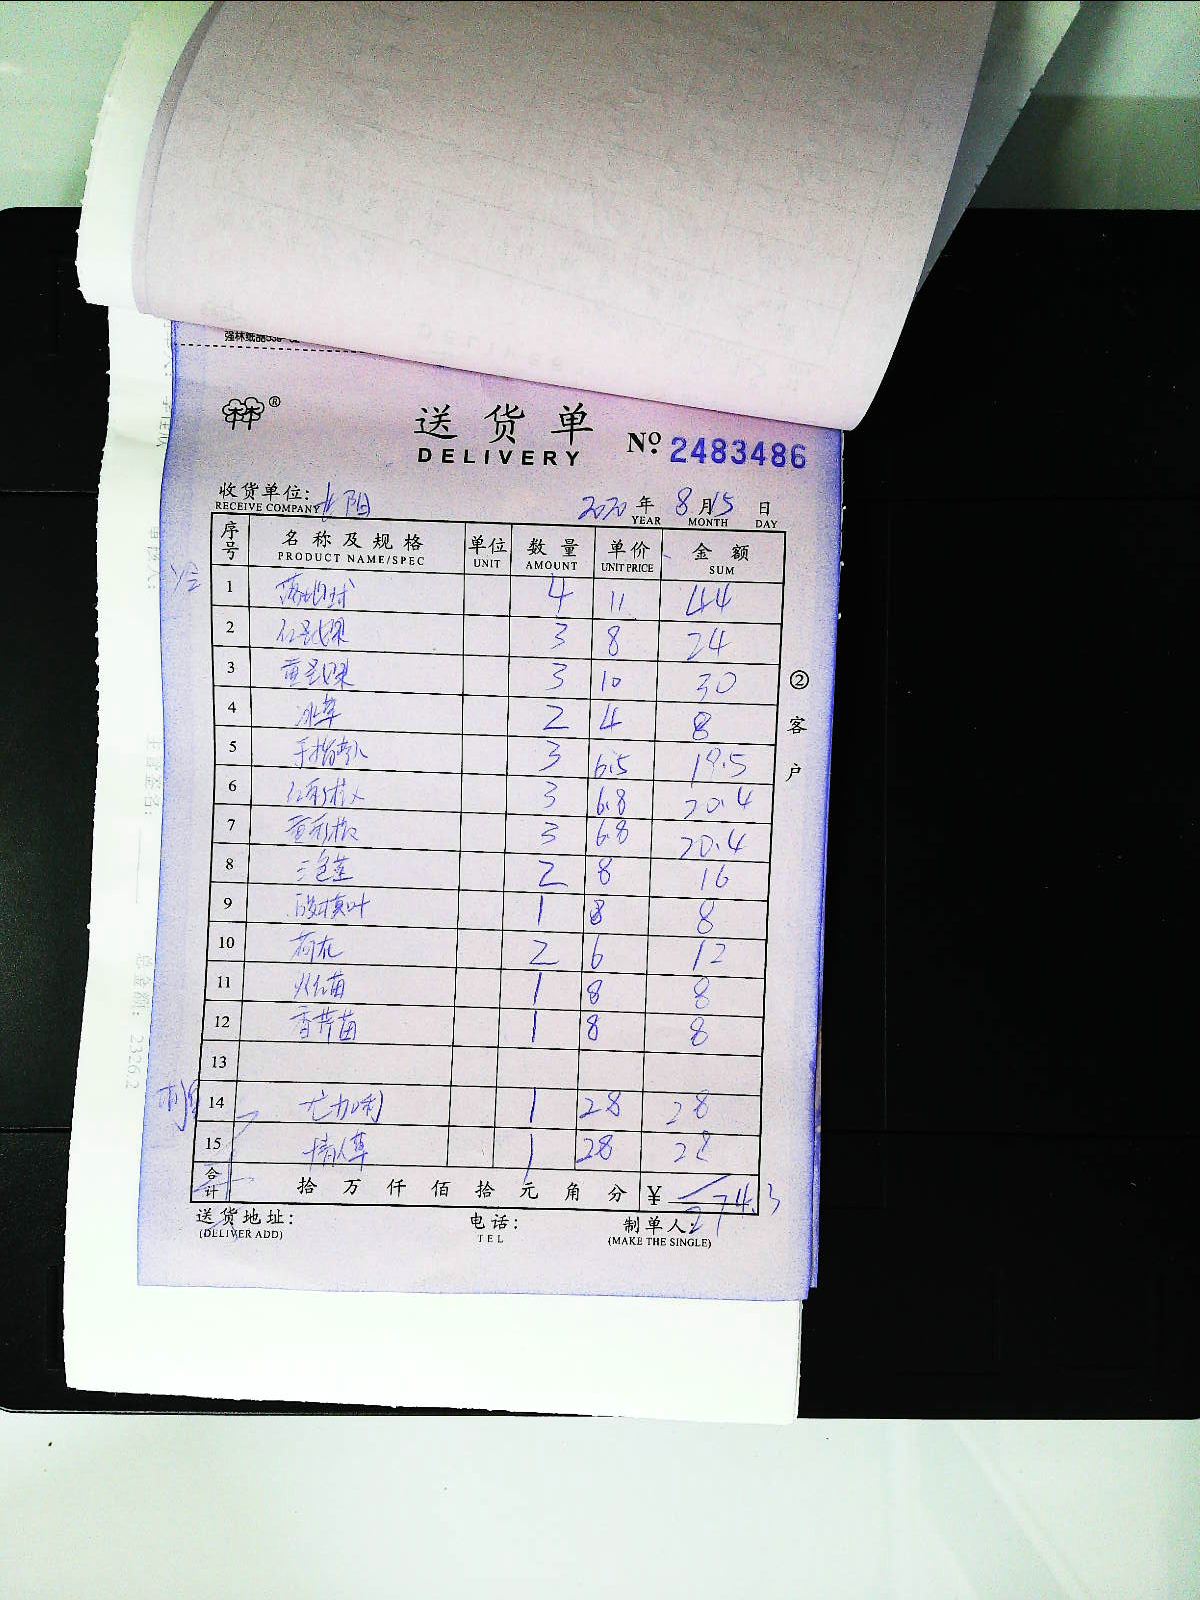 强林纸品
送货单
DELIVERY
No. 2483486
收货单位: 阳
RECEIVE COMPANY
2020 年 8 月 15 日
YEAR MONTH DAY
序号 名称及规格 单位 数量 单价 金额
PRODUCT NAME/SPEC UNIT AMOUNT UNIT PRICE SUM
1 落地球 4 11 44
2 3 8 24
3 3 10 30
4 冰草 2 4 8
5 手指 3 6.5 19.5
6 3 6.8 20.4
7 3 6.8 20.4
8 三色堇 2 8 16
9 酸模叶 1 8 8
10 荷花 2 6 12
11 火红苗 1 8 8
12 香芹苗 1 8 8
13
14 尤加利 1 28 28
15 情人草 1 28 28
合计 拾 万 仟 佰 拾 元 角 分 ¥ 274.3
送货地址: 电话: 制单人:
(DELIVER ADD) TEL (MAKE THE SINGLE)
② 客户
总金额: 2326.2